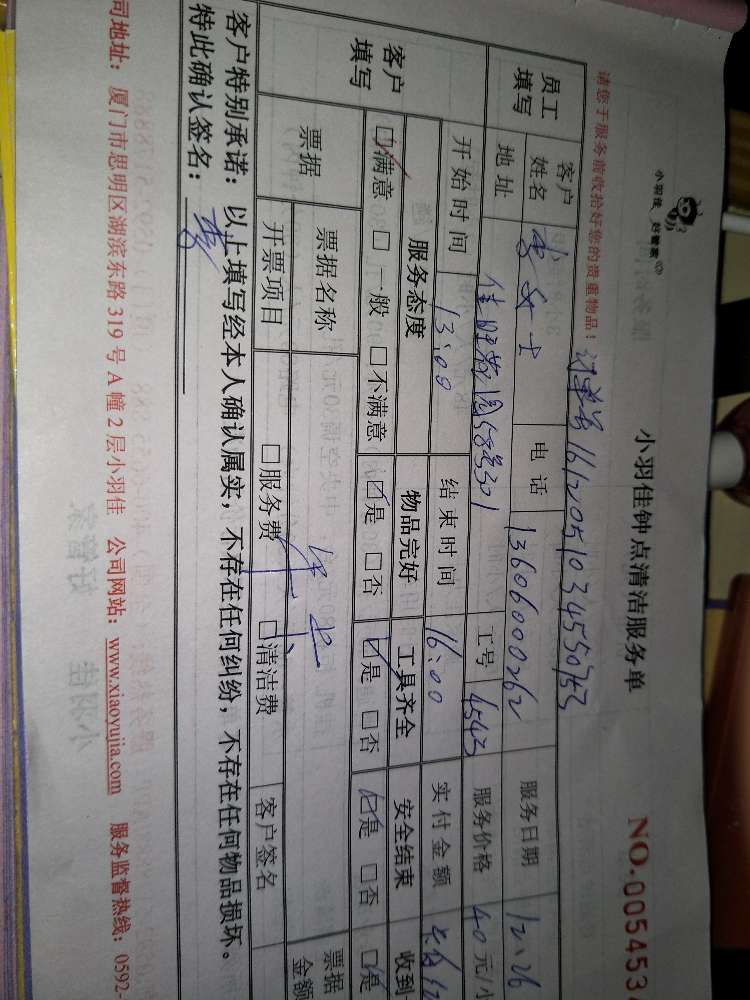 小羽佳 好管家
小羽佳钟点清洁服务单
NO.005453
请您于服务前收拾好您的贵重物品！
订单号 1612051034550753
员工填写 客户姓名 女士 电话 13606000262 服务日期 12.26
地址 佳旺花园58号301 工号 4543 服务价格 40元/小
客户填写 开始时间 13:00 结束时间 16:00 实付金额
服务态度 物品完好 工具齐全 安全结束 收到
☑满意 □一般 □不满意 ☑是 □否 ☑是 □否 ☑是 □否 □是
票据 票据名称 票据金额
开票项目 □服务费 □清洁费 客户签名
客户特别承诺：以上填写经本人确认属实，不存在任何纠纷，不存在任何物品损坏。
特此确认签名：
司地址：厦门市思明区湖滨东路319号A幢2层小羽佳 公司网站：www.xiaoyujia.com 服务监督热线：0592-